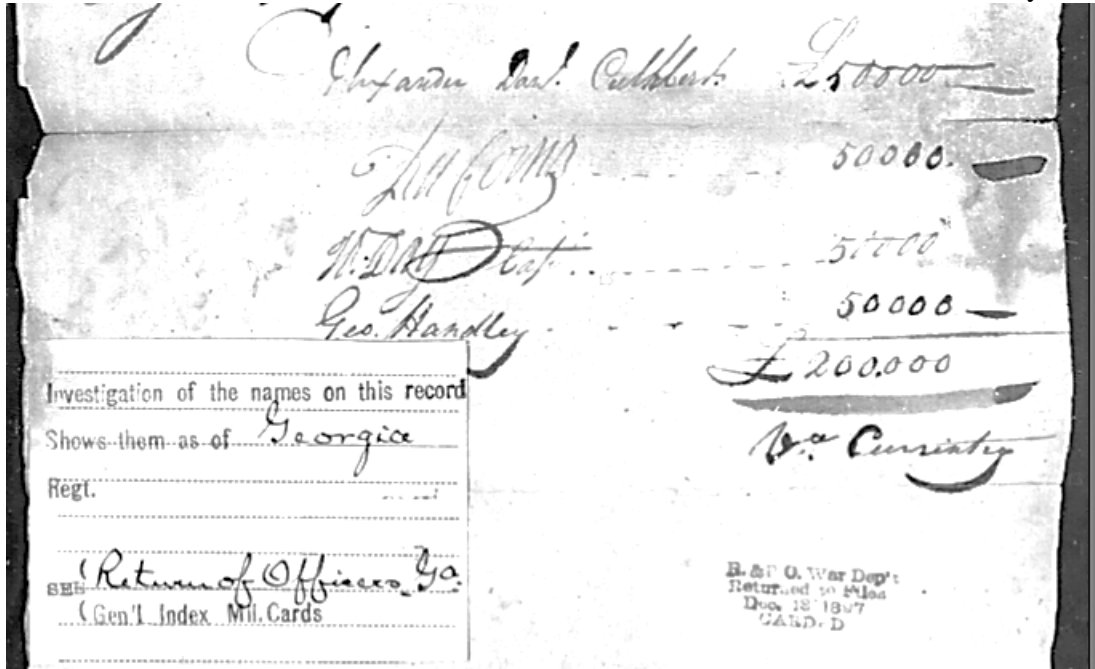 Alexander Danl. Cuthbert £50000
50000.
Capt 50000
Geo. Handley 50000
£200.000
Va Currintcy
Investigation of the names on this record
Shows them as of Georgia
Regt.
SEE (Return of Officers, Ga.
(Gen'l Index Mil. Cards
R. & P. O. War Dep't
Returned to Files
Dec. 18 1897
CARD. D